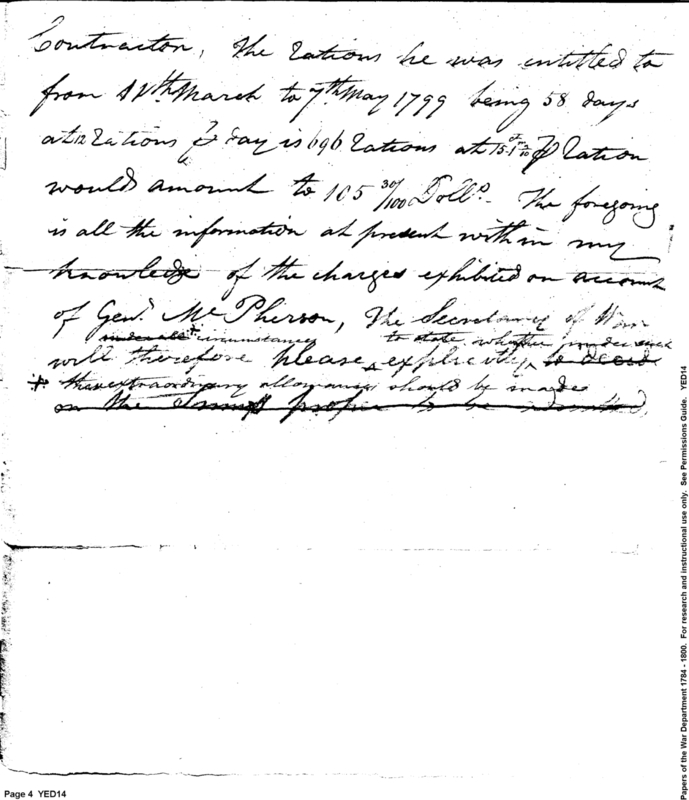 Contractor, the rations he was entitled to
from 11th March to 7th May 1799 being 58 days
at 12 rations P day is 696 rations at 15. P ration
would amount to 105 30/100 Dolls. The foregoing
is all the information at present within my
knowledge of the charges exhibited on account
of Genl. McPherson, The Secretary of War
under all * circumstances to state, whether under such
will therefore please ^ explicitly ^ to decide
* these extraordinary allowances should be made
on the proper to be admitted.
Page 4 YED14
Papers of the War Department 1784 - 1800. For research and instructional use only. See Permissions Guide. YED14